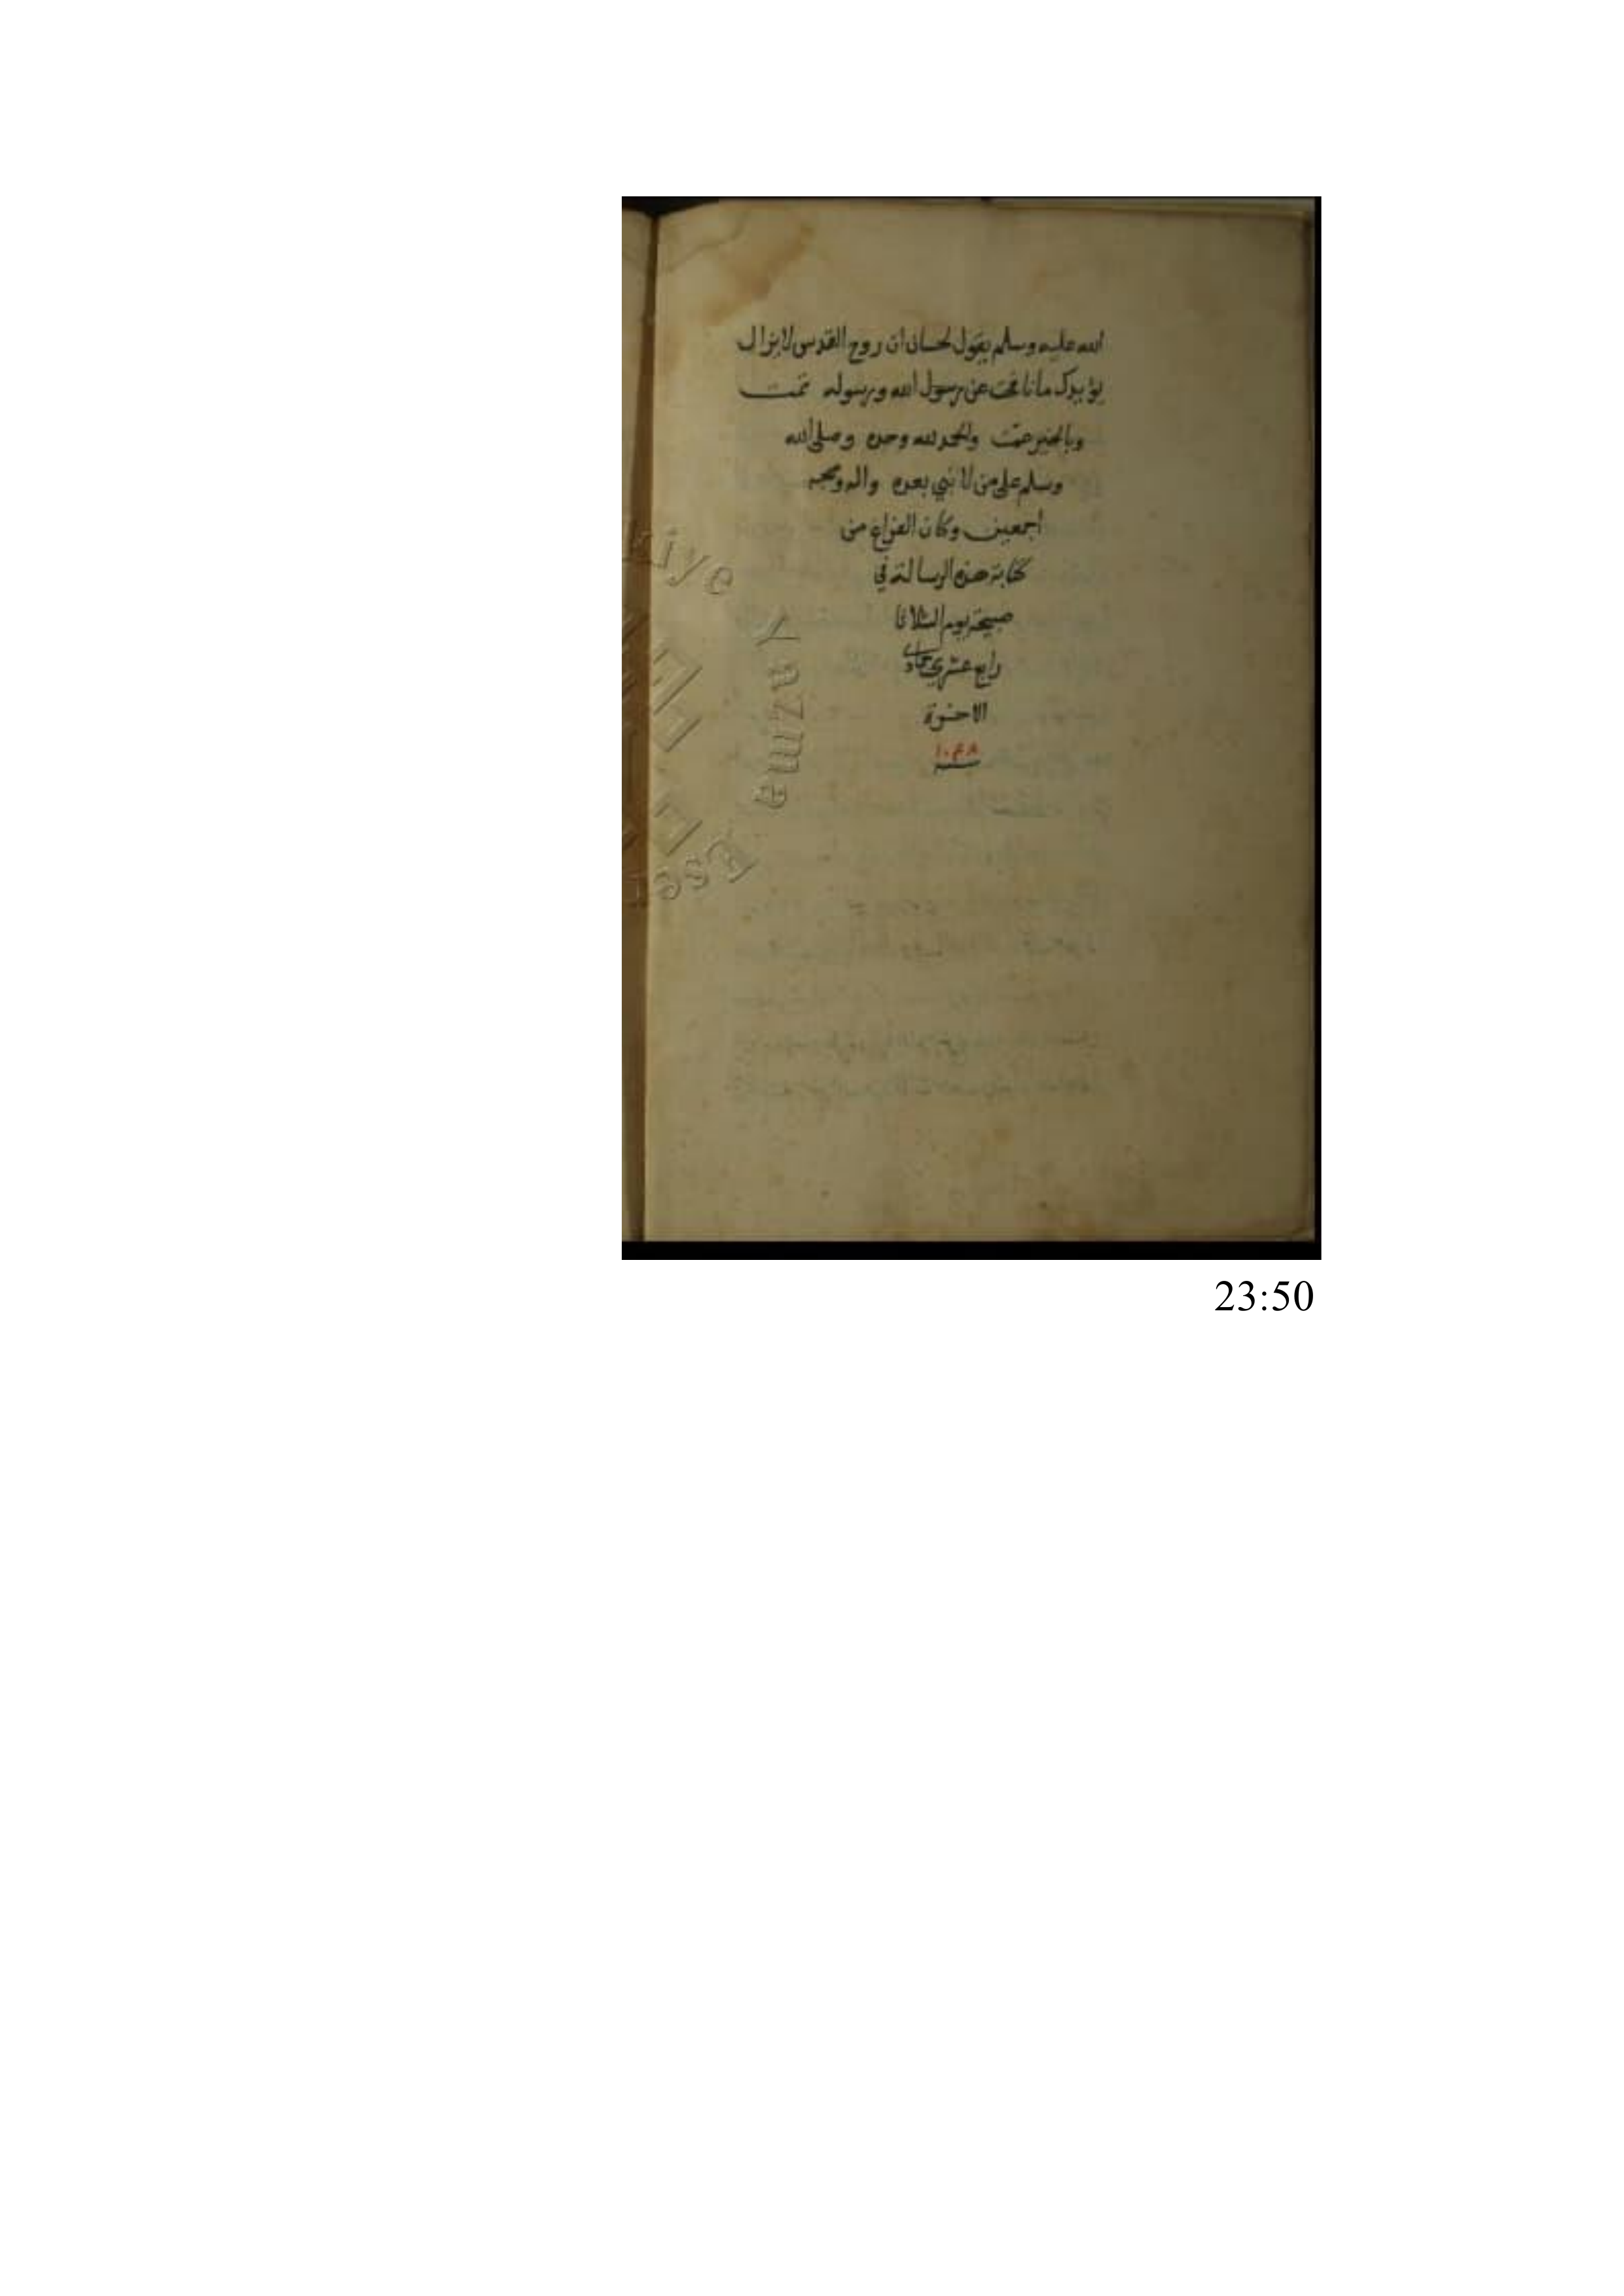 الله عليه وسلم يقول لحسان ان روح القدس لا يزال
يؤيدك ما نافحت عن رسول الله ورسوله تمت
وبالخير عمت والحمد لله وحده وصلى الله
وسلم على من لا نبي بعده واله وصحبه
اجمعين وكان الفراغ من
كتابة هذه الرسالة في
صبيحة يوم الثلاثا
رابع عشري جمادى
الاخرة
سنة
23:50